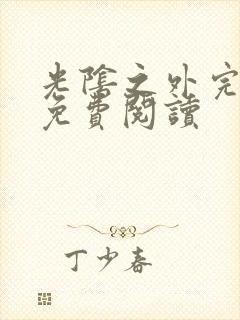 光陰之外完
免費閱讀
丁少春